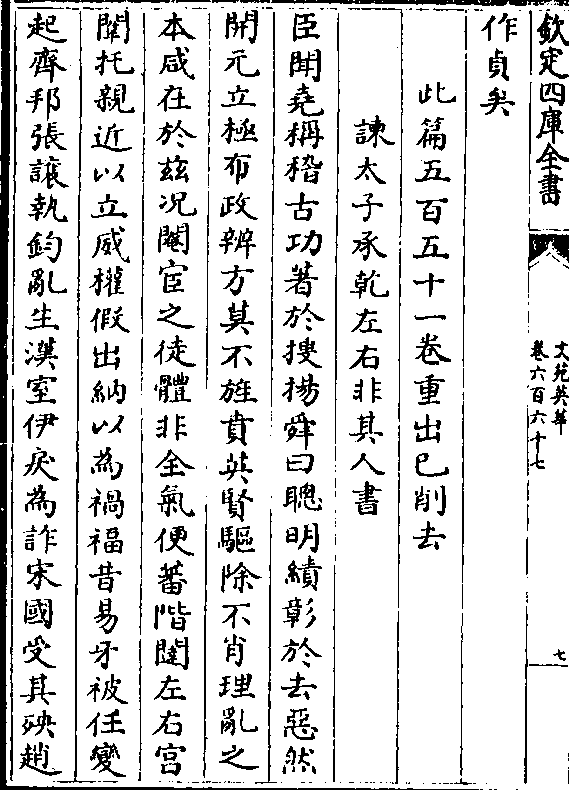 欽定四庫全書
文苑英華
卷六百六十七
七
作貞矣
此篇五百五十一卷重出已削去
諫太子承乾左右非其人書
臣聞堯稱稽古功著於搜揚舜曰聰明績彰於去惡然
開元立極布政辨方莫不旌賁英賢驅除不肖理亂之
本咸在於兹况閹宦之徒體非全氣便蕃階闥左右宫
闈托親近以立威權假出納以為禍福昔易牙被任變
起齊邦張讓執鈞亂生漢室伊戾為詐宋國受其殃趙